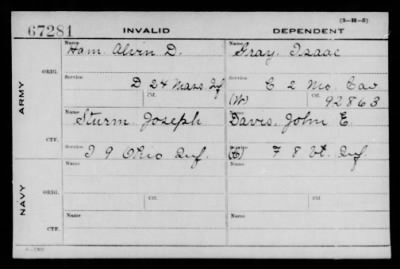 (3-H-5)
67281 INVALID DEPENDENT
Name Name
Ham, Alvin D. Gray, Isaac
ORIG. Service Service
D 24 Mass Inf C 2 Mo. Cav
Ctf. (W) Ctf. 92863
ARMY
Name Name
Sturm Joseph Davis, John E.
CTF. Service Service
I 9 Ohio Inf. F 8 Vt. Inf.
Name Name
ORIG. Service Ctf. Service Ctf.
NAVY
Name Name
CTF. Service Service